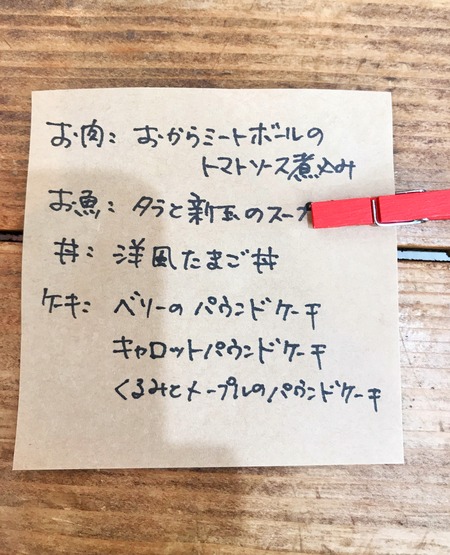 お肉: おからミートボールの
トマトソース煮込み
お魚: タラと新玉のスープ
丼: 洋風たまご丼
ケーキ: ベリーのパウンドケーキ
キャロットパウンドケーキ
くるみとメープルのパウンドケーキ